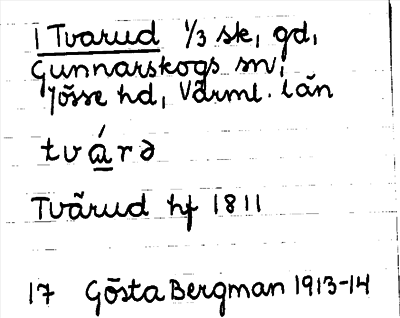 1 Tvarud 1/3 sk, gd,
Gunnarskogs sn,
Jösse hd, Värml. län
tvárə
Tvärud hf 1811
17 Gösta Bergman 1913-14